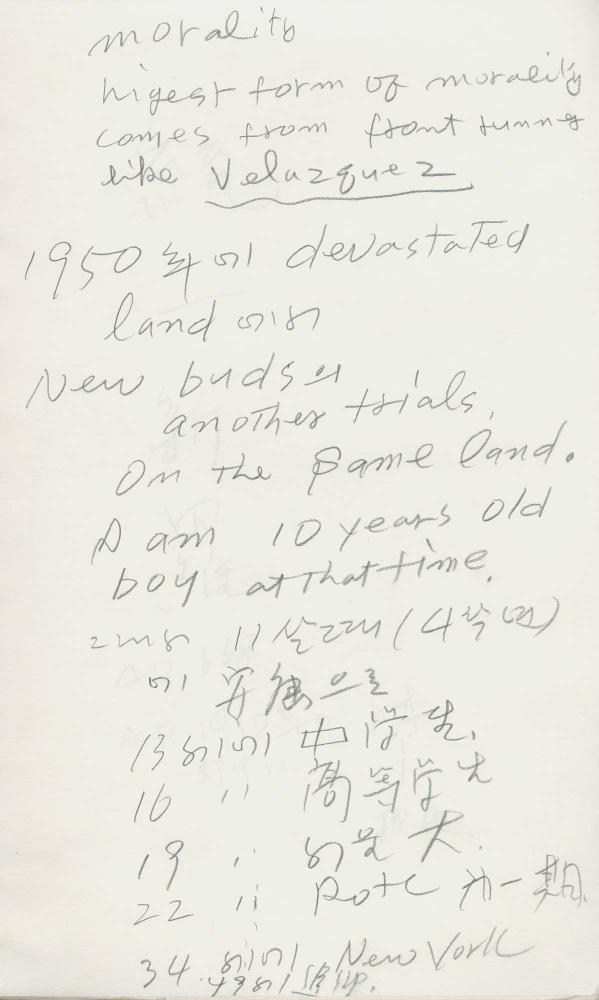 morality
higest form of morality
comes from front
like Velazquez
1950年에 devastated
land에서
New buds의
another trials,
On the same land.
I am 10 years old
boy at that time.
그래서 11살 그때 (4학년)
에 安養으로
13세에 中学生,
16 〃 高等学生
19 〃 서울大.
22 〃 ROTC 第一期
34 세에 New York
49세